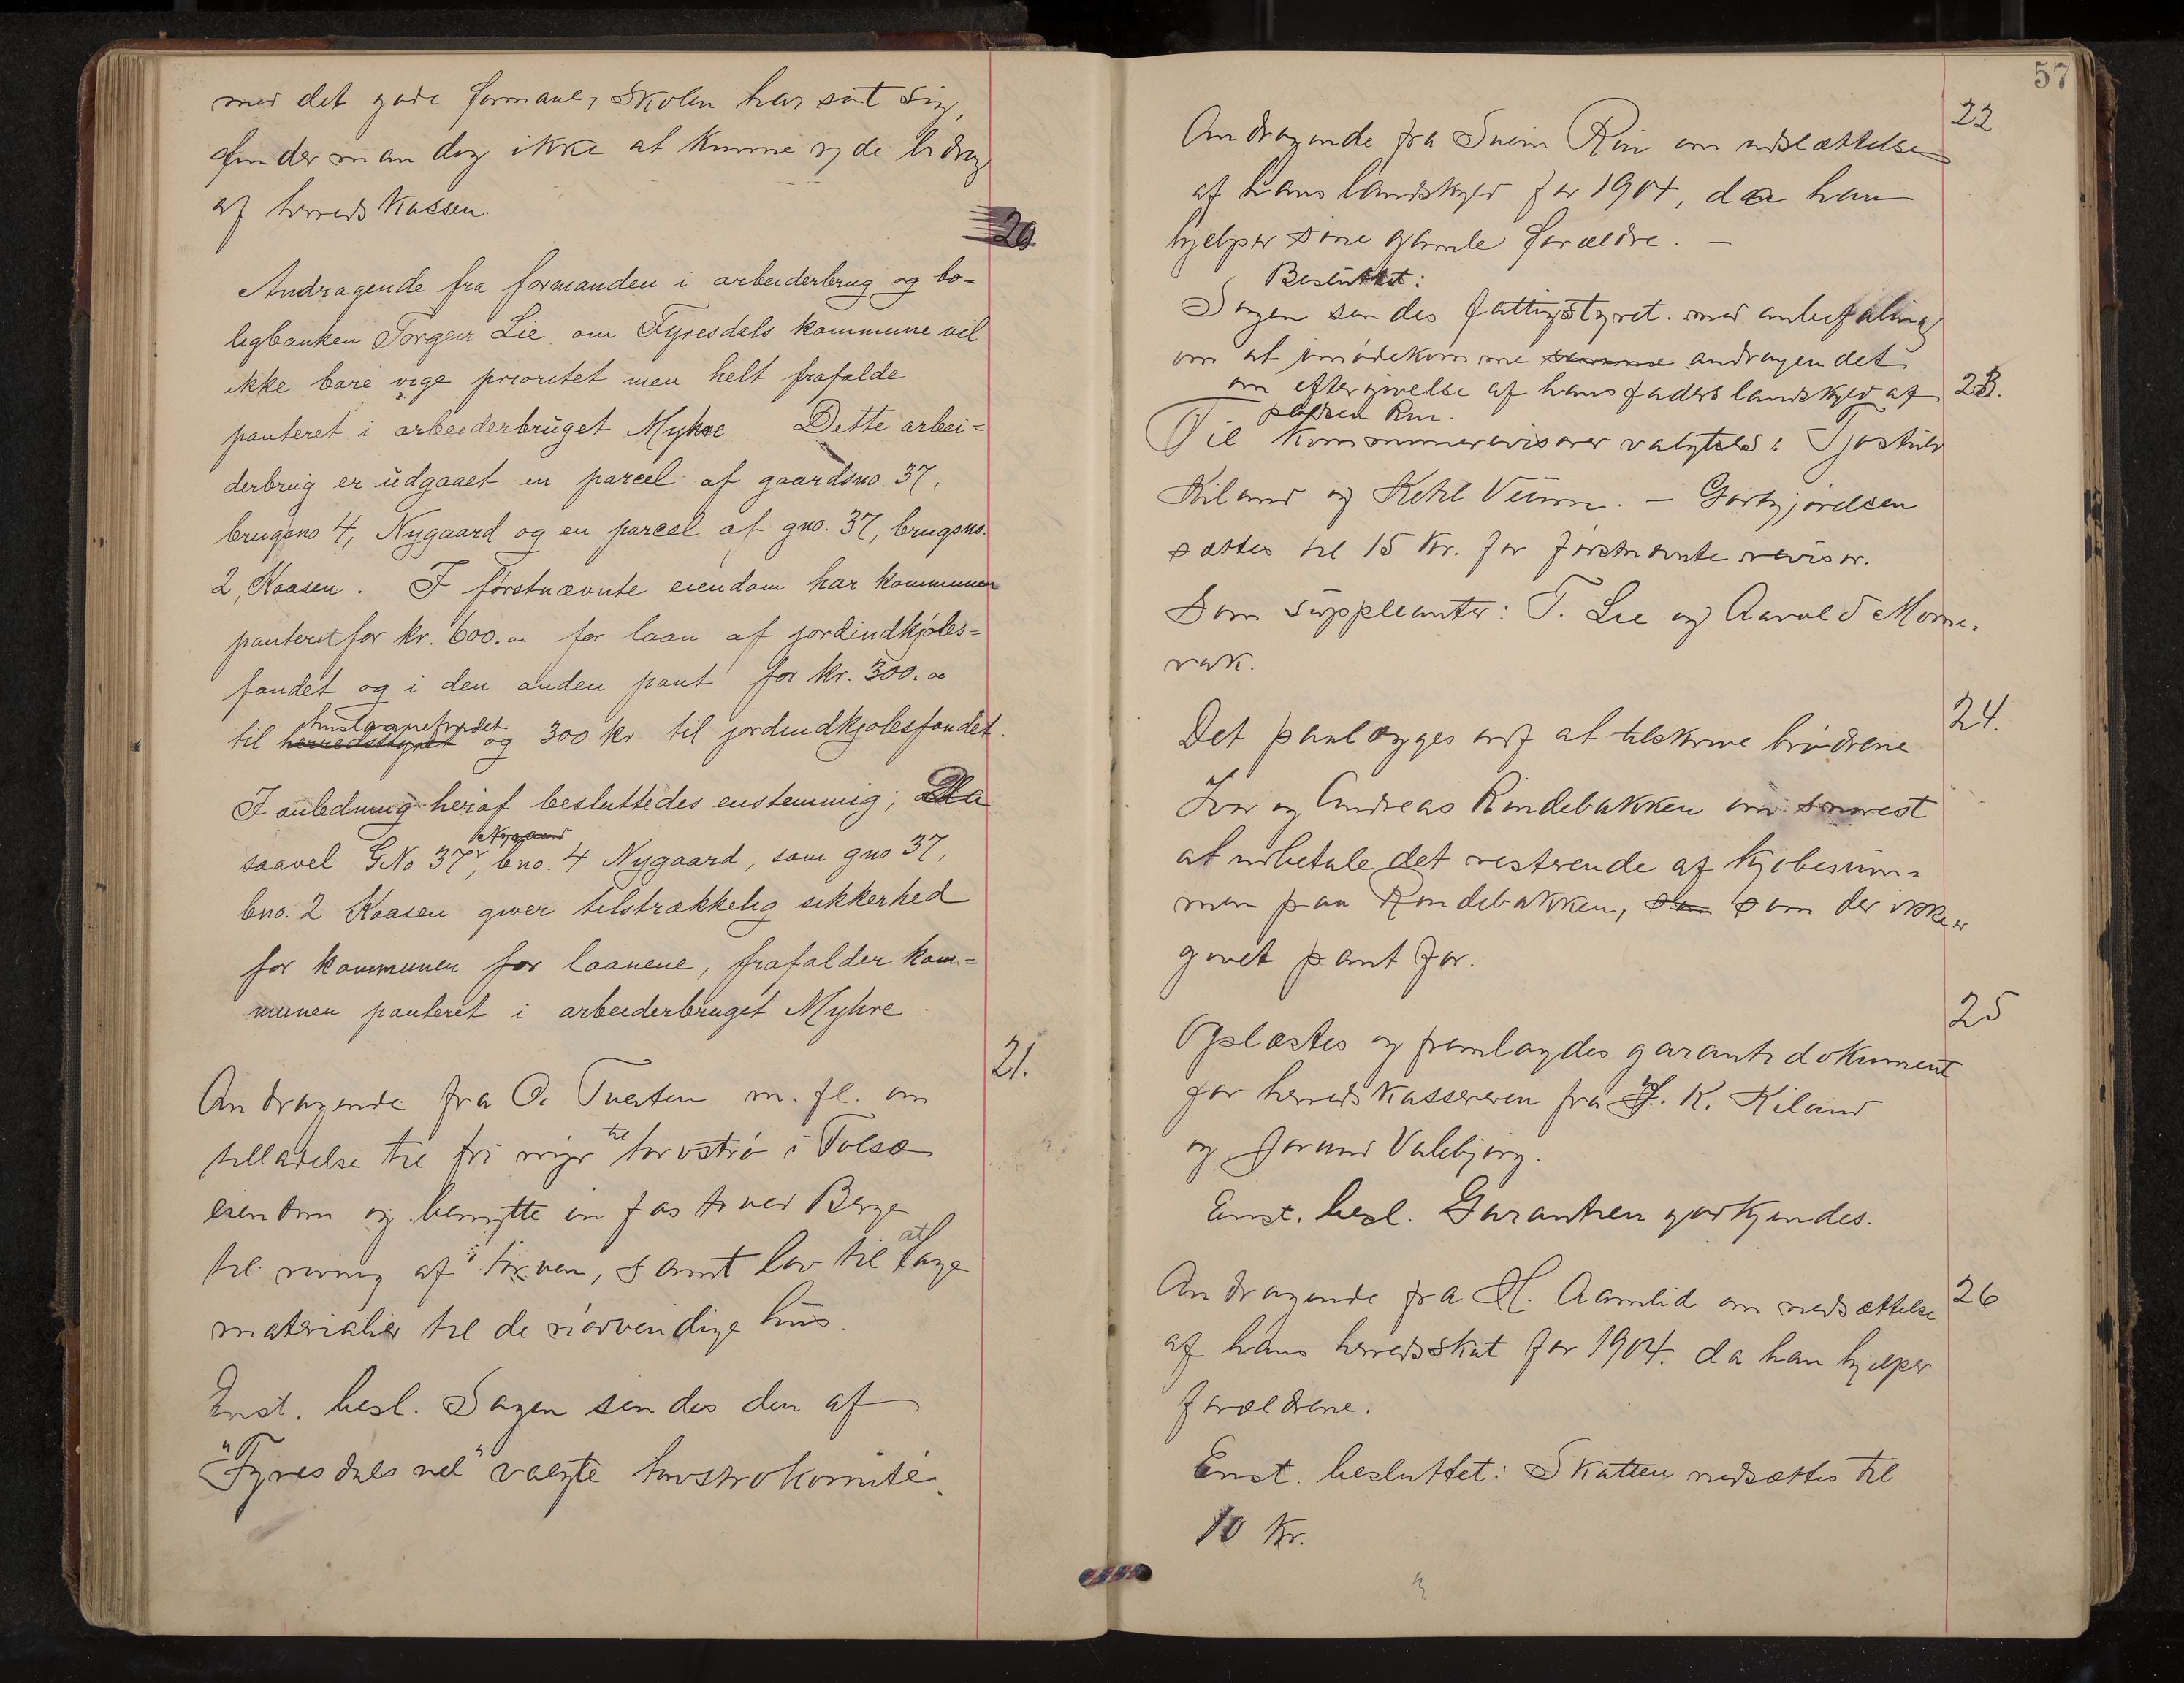 med det gode formaal, skolen har sat sig,
finder man dog ikke at kunne yde bidrag
af herredskassen.
20.
Andragende fra formanden i arbeiderbrug og bo-
ligbanken Torgeir Lie om Fyresdals kommune vil
ikke bare vige prioritet men helt frafalde
panteret i arbeiderbruget Myhre. Dette arbei=
derbrug er udgaaet en parcel af gaardsno. 37,
brugsno 4, Nygaard og en parcel af gno. 37, brugsno.
2, Kaasen. I førstnævnte eiendom har kommunen
panteret for kr. 600.00 for laan af jordindkjøbs=
fondet og i den anden pant for kr. 300.00
til herredsstyret og 300 kr til jordindkjøbsfondet.
I anledning heraf besluttedes enstemmig; Da
Nygaard
saavel GNo 37, bno. 4 Nygaard, som gno 37,
bno. 2 Kaasen giver tilstrækkelig sikkerhed
for kommunen for laanene, frafalder kom=
munen panteret i arbeiderbruget Myhre.
21.
Andragende fra O. Tveiten m. fl. om
til
tilladelse til fri myr torvstrø i Folsæ
eiendom og benytte en fos ved Berge
til riving af torven, samt lov til at tage
materialier til de nødvendige hus.
Enst. besl. Sagen sendes den af
"Fyresdals vel" valgte torvstrøkomité.
57
22
Andragende fra Svein Rui om udsættelse
af hans landskyld for 1904, da han
hjelper sine gamle forældre. –
Besluttet:
Sagen sendes fattigstyret med anbefaling
om at imødekomme samme andragendet
om eftergivelse af hans faders landskyld af
pladsen Rui.
23.
Til kommunerevisorer valgtes: Tjostulv
Kiland og Ketil Veum. – Godtgjørelsen
sættes til 15 kr. for førstnævnte revisor.
Som suppleanter: T. Lie og Aavald Mome-
rak.
24.
Det paalægges ordf at tilskrive brødrene
Ivar og Andreas Rindebakken om snarest
at udbetale det resterende af kjøbesum=
men paa Rindebakken, som der ikke er
givet pant for.
25
Oplæstes og fremlagdes garantidokument
for herredskassereren fra H. K. Kiland
og Jorund Valebjørg.
Enst. besl. Garantien godkjendes.
26
Andragende fra H. Aamlid om nedsættelse
af hans herredsskat for 1904. da han hjelper
forældrene.
Enst. besluttet: Skatten nedsættes til
10 kr.